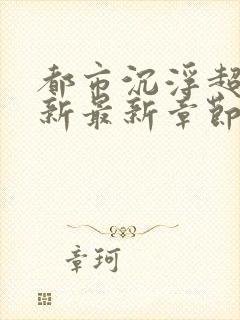 都市沉浮超
新最新章節
章珂